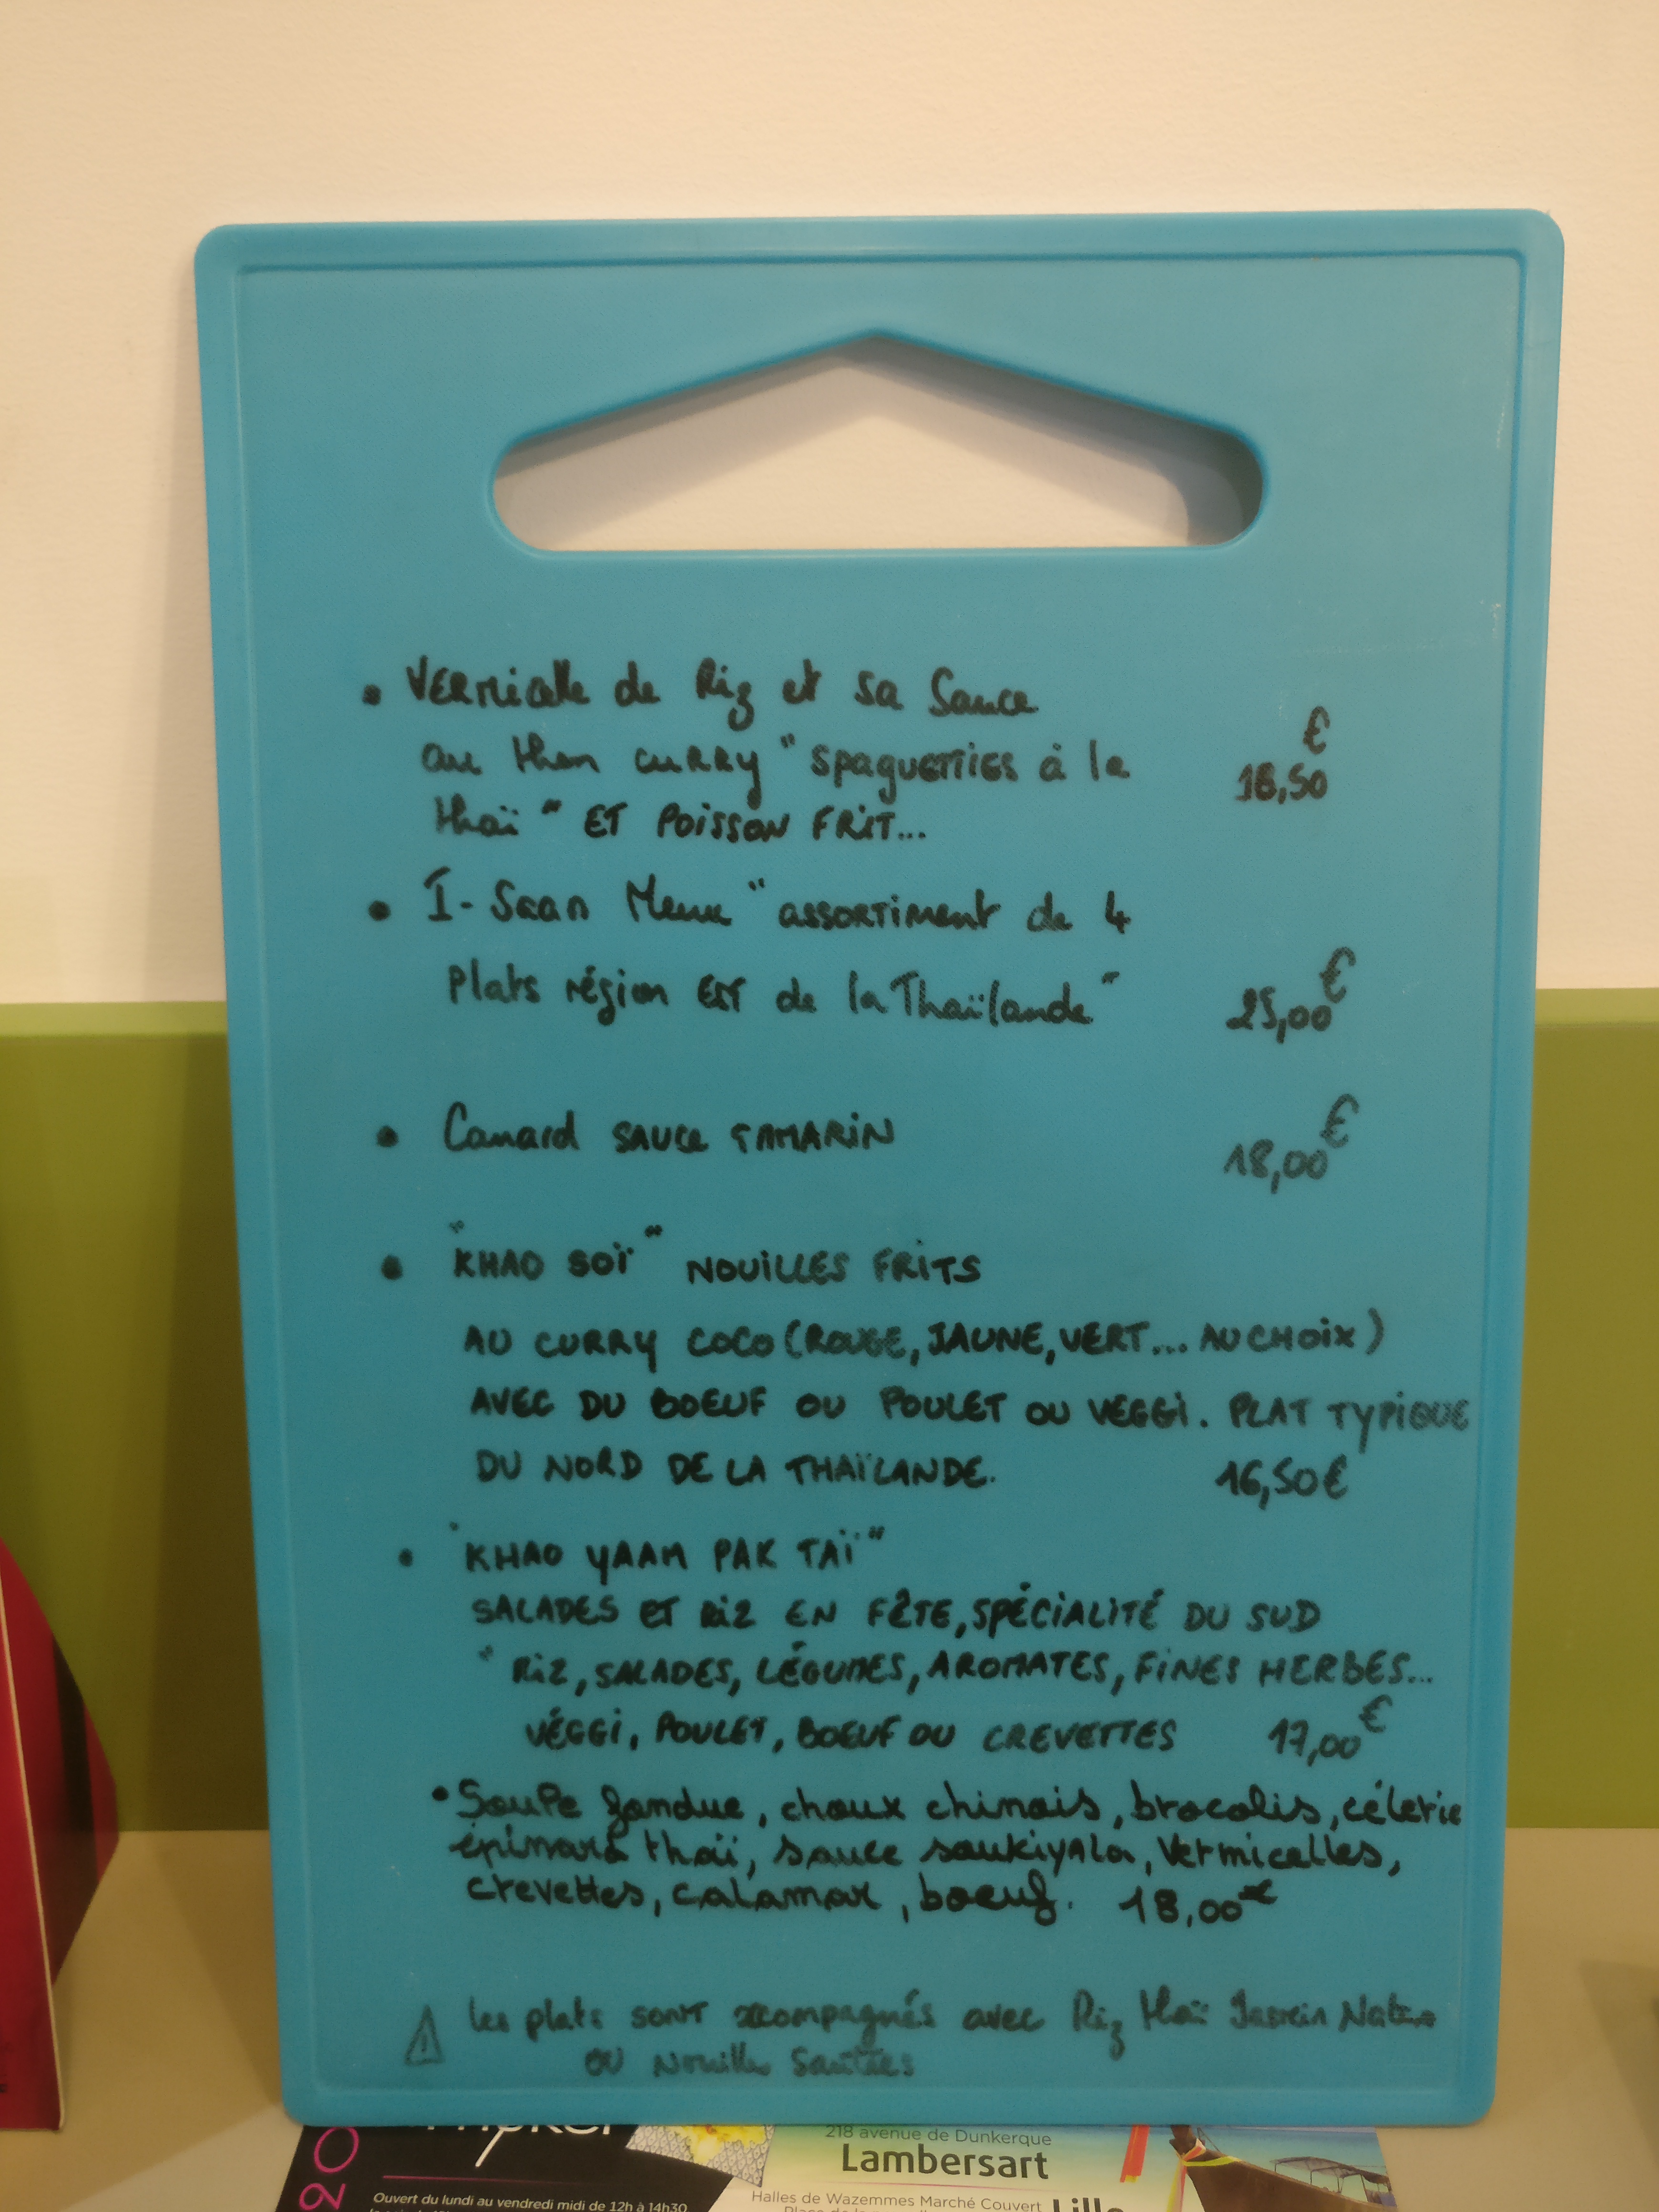 • Vermicelle de Riz et sa Sauce
au thon curry "spaguetties à la
€
18,50
thaï" ET POISSON FRIT...
• I-Saan Menu "assortiment de 4
Plats région EST de la Thaïlande"
25,00€
• Canard SAUCE TAMARIN
18,00€
• "KHAO SOÏ" NOUILLES FRITS
AU CURRY COCO (ROUGE, JAUNE, VERT... AU CHOIX)
AVEC DU BOEUF OU POULET OU VEGGI. PLAT TYPIQUE
DU NORD DE LA THAÏLANDE. 16,50€
• "KHAO YAAM PAK TAÏ"
SALADES ET RIZ EN FÊTE, SPÉCIALITÉ DU SUD
"RIZ, SALADES, LÉGUMES, AROMATES, FINES HERBES...
VÉGGI, POULET, BOEUF OU CREVETTES 17,00€
• Soupe fondue, choux chinois, brocolis, céleri
épinard thaï, sauce soukiyala, vermicelles,
crevettes, calamar, boeuf. 18,00€
⚠ les plats sont accompagnés avec Riz thaï Jasmin
ou Nouilles Sautées
20
218 avenue de Dunkerque
Lambersart
Ouvert du lundi au vendredi midi de 12h à 14h30
Halles de Wazemmes Marché Couvert
Lille